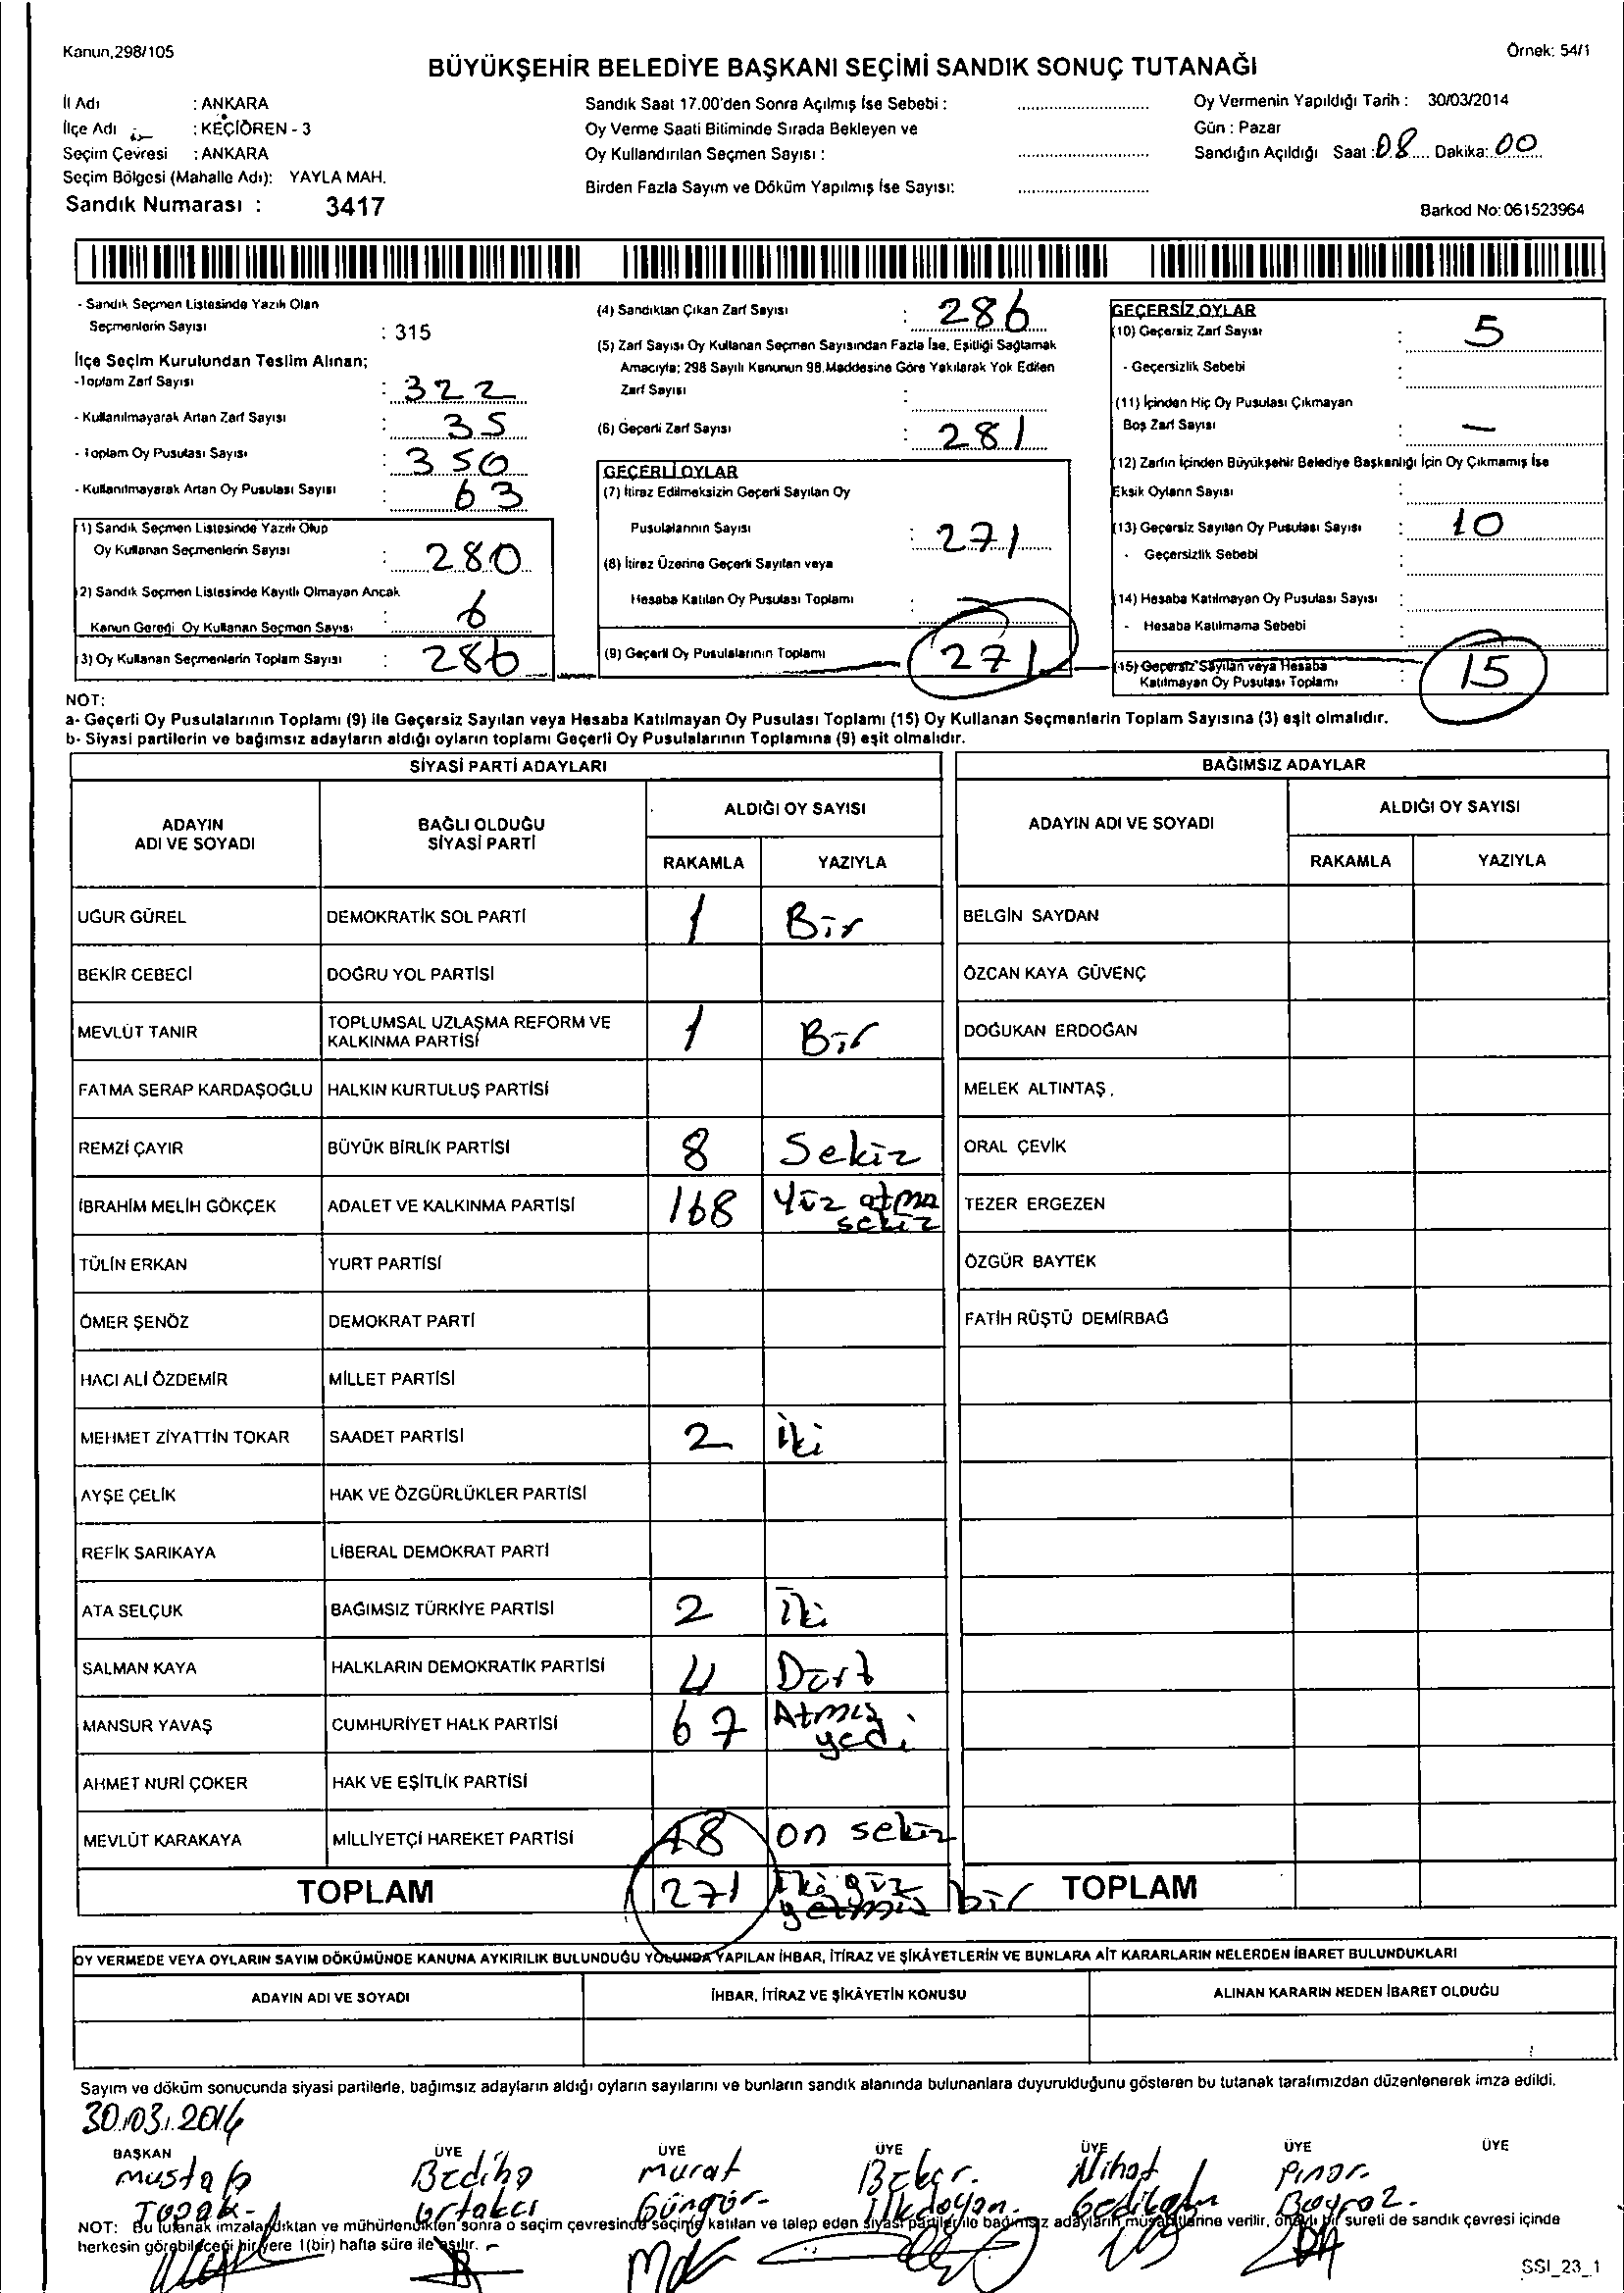 Kanun,298/105
Örnek: 54/1
BÜYÜKŞEHİR BELEDİYE BAŞKANI SEÇİMİ SANDIK SONUÇ TUTANAĞI
İl Adı : ANKARA
İlçe Adı : KEÇİÖREN - 3
Seçim Çevresi : ANKARA
Seçim Bölgesi (Mahalle Adı): YAYLA MAH.
Sandık Numarası : 3417
Sandık Saat 17.00'den Sonra Açılmış İse Sebebi :
Oy Verme Saati Bitiminde Sırada Bekleyen ve
Oy Kullandırılan Seçmen Sayısı :
Birden Fazla Sayım ve Döküm Yapılmış İse Sayısı:
Oy Vermenin Yapıldığı Tarih : 30/03/2014
Gün : Pazar
Sandığın Açıldığı Saat : 08 Dakika: 00
Barkod No: 061523964
- Sandık Seçmen Listesinde Yazılı Olan
Seçmenlerin Sayısı : 315
İlçe Seçim Kurulundan Teslim Alınan;
-Toplam Zarf Sayısı : 322
- Kullanılmayarak Artan Zarf Sayısı : 35
- Toplam Oy Pusulası Sayısı : 350
- Kullanılmayarak Artan Oy Pusulası Sayısı : 63
(1) Sandık Seçmen Listesinde Yazılı Olup
Oy Kullanan Seçmenlerin Sayısı : 280
(2) Sandık Seçmen Listesinde Kayıtlı Olmayan Ancak
Kanun Gereği Oy Kullanan Seçmen Sayısı : 6
(3) Oy Kullanan Seçmenlerin Toplam Sayısı : 286
(4) Sandıktan Çıkan Zarf Sayısı : 286
(5) Zarf Sayısı Oy Kullanan Seçmen Sayısından Fazla İse, Eşitliği Sağlamak
Amacıyla; 298 Sayılı Kanunun 98.Maddesine Göre Yakılarak Yok Edilen
Zarf Sayısı :
(6) Geçerli Zarf Sayısı : 281
GEÇERLİ OYLAR
(7) İtiraz Edilmeksizin Geçerli Sayılan Oy
Pusulalarının Sayısı : 271
(8) İtiraz Üzerine Geçerli Sayılan veya
Hesaba Katılan Oy Pusulası Toplamı : —
(9) Geçerli Oy Pusulalarının Toplamı 271
GEÇERSİZ OYLAR
(10) Geçersiz Zarf Sayısı : 5
- Geçersizlik Sebebi :
(11) İçinden Hiç Oy Pusulası Çıkmayan
Boş Zarf Sayısı : —
(12) Zarfın İçinden Büyükşehir Belediye Başkanlığı İçin Oy Çıkmamış İse
Eksik Oyların Sayısı :
(13) Geçersiz Sayılan Oy Pusulası Sayısı : 10
- Geçersizlik Sebebi :
(14) Hesaba Katılmayan Oy Pusulası Sayısı :
- Hesaba Katılmama Sebebi :
(15) Geçersiz Sayılan veya Hesaba
Katılmayan Oy Pusulası Toplamı : 15
NOT:
a- Geçerli Oy Pusulalarının Toplamı (9) ile Geçersiz Sayılan veya Hesaba Katılmayan Oy Pusulası Toplamı (15) Oy Kullanan Seçmenlerin Toplam Sayısına (3) eşit olmalıdır.
b- Siyasi partilerin ve bağımsız adayların aldığı oyların toplamı Geçerli Oy Pusulalarının Toplamına (9) eşit olmalıdır.
SİYASİ PARTİ ADAYLARI
ADAYIN ADI VE SOYADI
BAĞLI OLDUĞU SİYASİ PARTİ
ALDIĞI OY SAYISI
RAKAMLA YAZIYLA
UĞUR GÜREL DEMOKRATİK SOL PARTİ 1 Bir
BEKİR CEBECİ DOĞRU YOL PARTİSİ
MEVLÜT TANIR TOPLUMSAL UZLAŞMA REFORM VE KALKINMA PARTİSİ 1 Bir
FATMA SERAP KARDAŞOĞLU HALKIN KURTULUŞ PARTİSİ
REMZİ ÇAYIR BÜYÜK BİRLİK PARTİSİ 8 Sekiz
İBRAHİM MELİH GÖKÇEK ADALET VE KALKINMA PARTİSİ 168 Yüz atmış sekiz
TÜLİN ERKAN YURT PARTİSİ
ÖMER ŞENÖZ DEMOKRAT PARTİ
HACI ALİ ÖZDEMİR MİLLET PARTİSİ
MEHMET ZİYATTİN TOKAR SAADET PARTİSİ 2 İki
AYŞE ÇELİK HAK VE ÖZGÜRLÜKLER PARTİSİ
REFİK SARIKAYA LİBERAL DEMOKRAT PARTİ
ATA SELÇUK BAĞIMSIZ TÜRKİYE PARTİSİ 2 İki
SALMAN KAYA HALKLARIN DEMOKRATİK PARTİSİ 4 Dört
MANSUR YAVAŞ CUMHURİYET HALK PARTİSİ 67 Atmış yedi
AHMET NURİ ÇOKER HAK VE EŞİTLİK PARTİSİ
MEVLÜT KARAKAYA MİLLİYETÇİ HAREKET PARTİSİ 18 on sekiz
TOPLAM 271 İki yüz yetmiş bir
BAĞIMSIZ ADAYLAR
ADAYIN ADI VE SOYADI
ALDIĞI OY SAYISI
RAKAMLA YAZIYLA
BELGİN SAYDAN
ÖZCAN KAYA GÜVENÇ
DOĞUKAN ERDOĞAN
MELEK ALTINTAŞ
ORAL ÇEVİK
TEZER ERGEZEN
ÖZGÜR BAYTEK
FATİH RÜŞTÜ DEMİRBAĞ
TOPLAM
OY VERMEDE VEYA OYLARIN SAYIM DÖKÜMÜNDE KANUNA AYKIRILIK BULUNDUĞU YOLUNDA YAPILAN İHBAR, İTİRAZ VE ŞİKÂYETLERİN VE BUNLARA AİT KARARLARIN NELERDEN İBARET BULUNDUKLARI
ADAYIN ADI VE SOYADI
İHBAR, İTİRAZ VE ŞİKÂYETİN KONUSU
ALINAN KARARIN NEDEN İBARET OLDUĞU
Sayım ve döküm sonucunda siyasi partilerle, bağımsız adayların aldığı oyların sayılarını ve bunların sandık alanında bulunanlara duyurulduğunu gösteren bu tutanak tarafımızdan düzenlenerek imza edildi.
30.03.2014
BAŞKAN ÜYE ÜYE ÜYE ÜYE ÜYE ÜYE
Mustafa Bediha Murat Beker Nihat Pınar
Topak Ortakcı Güngör İlkdoğan Gedikoğlu Boyraz
NOT: Bu tutanak imzalandıktan ve mühürlendikten sonra o seçim çevresinde seçime katılan ve talep eden siyasi partiler ile bağımsız adayların müşahitlerine verilir, onaylı bir sureti de sandık çevresi içinde
herkesin görebileceği bir yere 1(bir) hafta süre ile asılır.
SSI_23_1